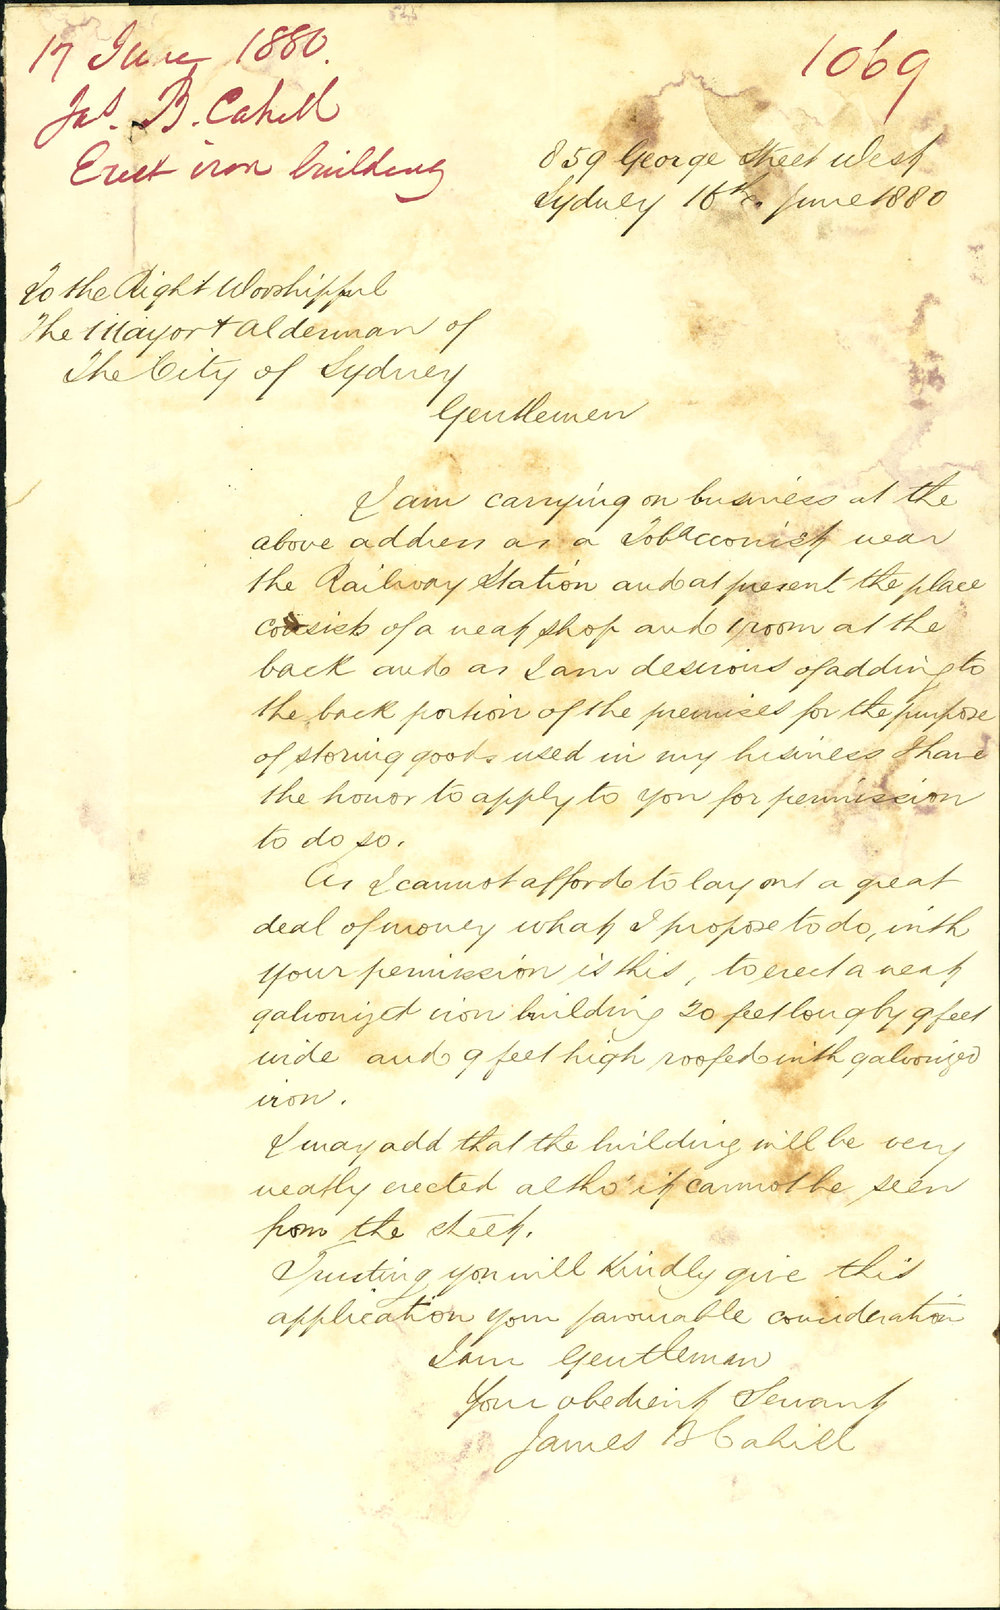 17 June 1880.
Jas. B. Cahill
Erect iron building
1069
859 George Street West
Sydney 16th. June 1880
To the Right Worshipful
The Mayor & Alderman of
The City of Sydney
Gentlemen
I am carrying on business at the
above address as a Tobacconist near
the Railway Station and at present the place
consists of a neat shop and 1 room at the
back and as I am desirous of adding to
the back portion of the premises for the purpose
of storing goods used in my business I have
the honor to apply to you for permission
to do so.
As I cannot afford to lay out a great
deal of money what I propose to do, with
your permission is this, to erect a neat
galvonized iron building 20 feet long by 9 feet
wide and 9 feet high roofed with galvonized
iron.
I may add that the building will be very
neatly erected altho' it cannot be seen
from the street.
Trusting you will kindly give this
application your favourable consideration
I am Gentleman
Your obedient Servant
James B Cahill